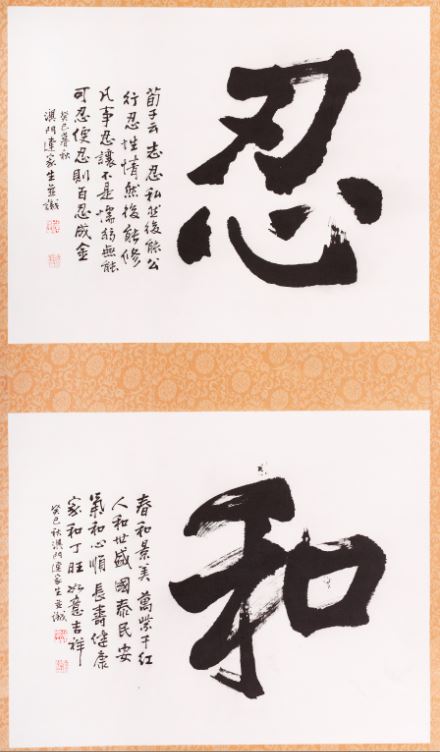 忍
荀子云志忍私然後能公
行忍性情然後能修
凡事忍讓不是懦弱無能
可忍便忍則百忍成金
癸巳暮秋
澳門連家生並識
和
春和景美萬紫千紅
人和世盛國泰民安
氣和心順長壽健康
家和丁旺如意吉祥
癸巳秋澳門連家生並識